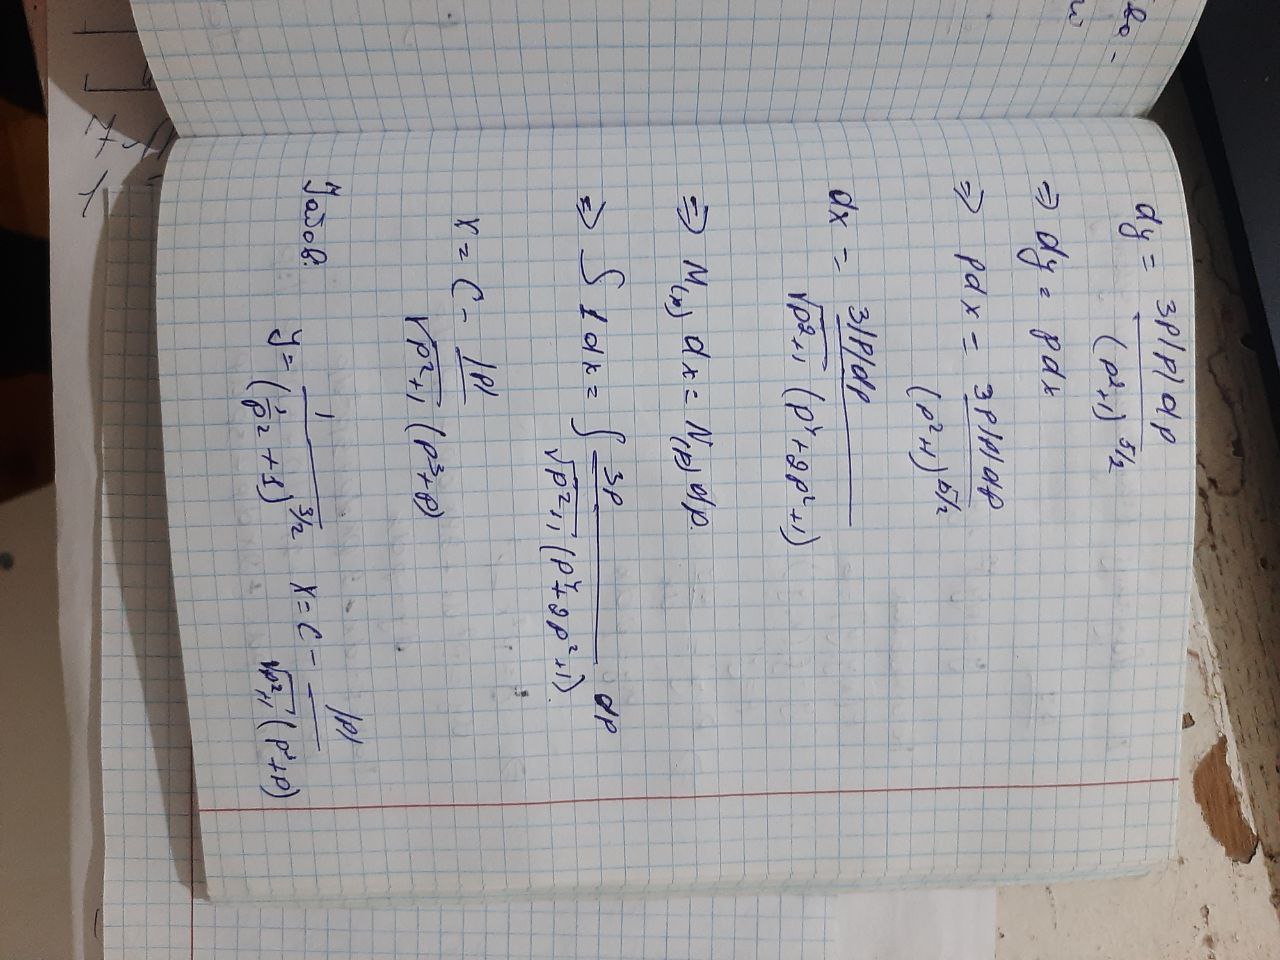 dy = 3p|p|dp / (p²+1)^5/2
⇒ dy = pdx
⇒ pdx = 3p|p|dp / (p²+1)^5/2
dx = 3|p|dp / √p²+1 (p⁴+2p²+1)
⇒ M(x) dx = N(p) dp.
⇒ ∫ 1dx = ∫ 3p / √p²+1 (p⁴+2p²+1) dp
x = C - |p| / √p²+1 (p³+p)
y = 1 / (1/p² + 1)^3/2 x = C - |p| / √p²+1 (p³+p)